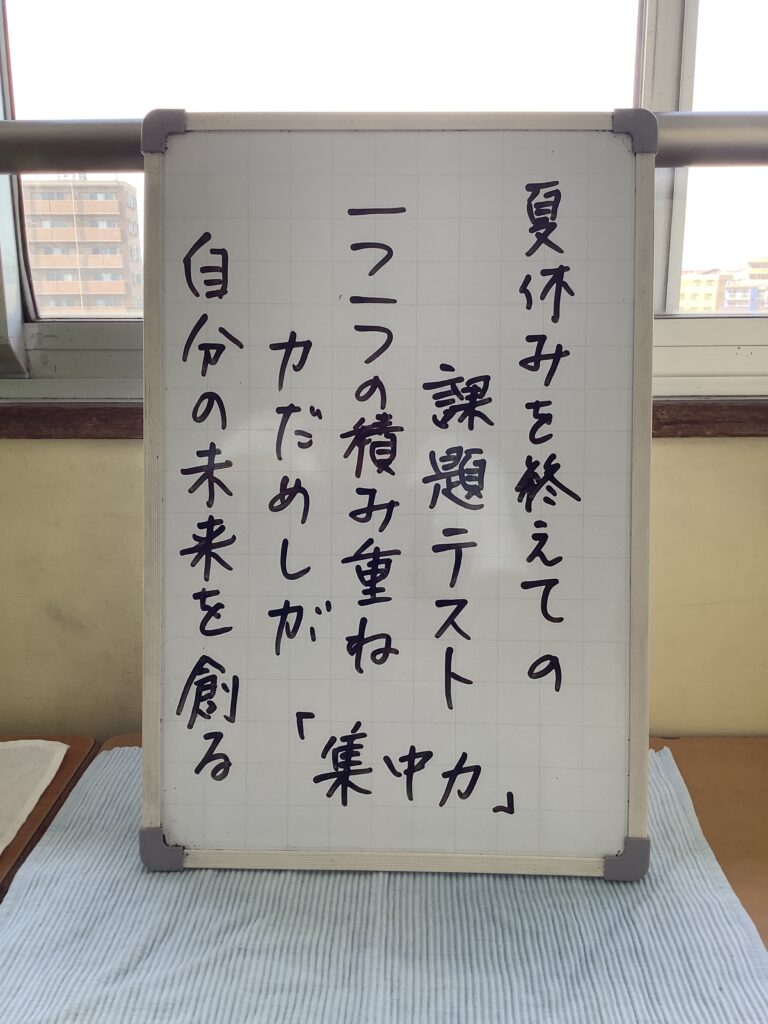 夏休みを終えての
課題テスト
一つ一つの積み重ね
力だめしが
自分の未来を創る
「集中力」